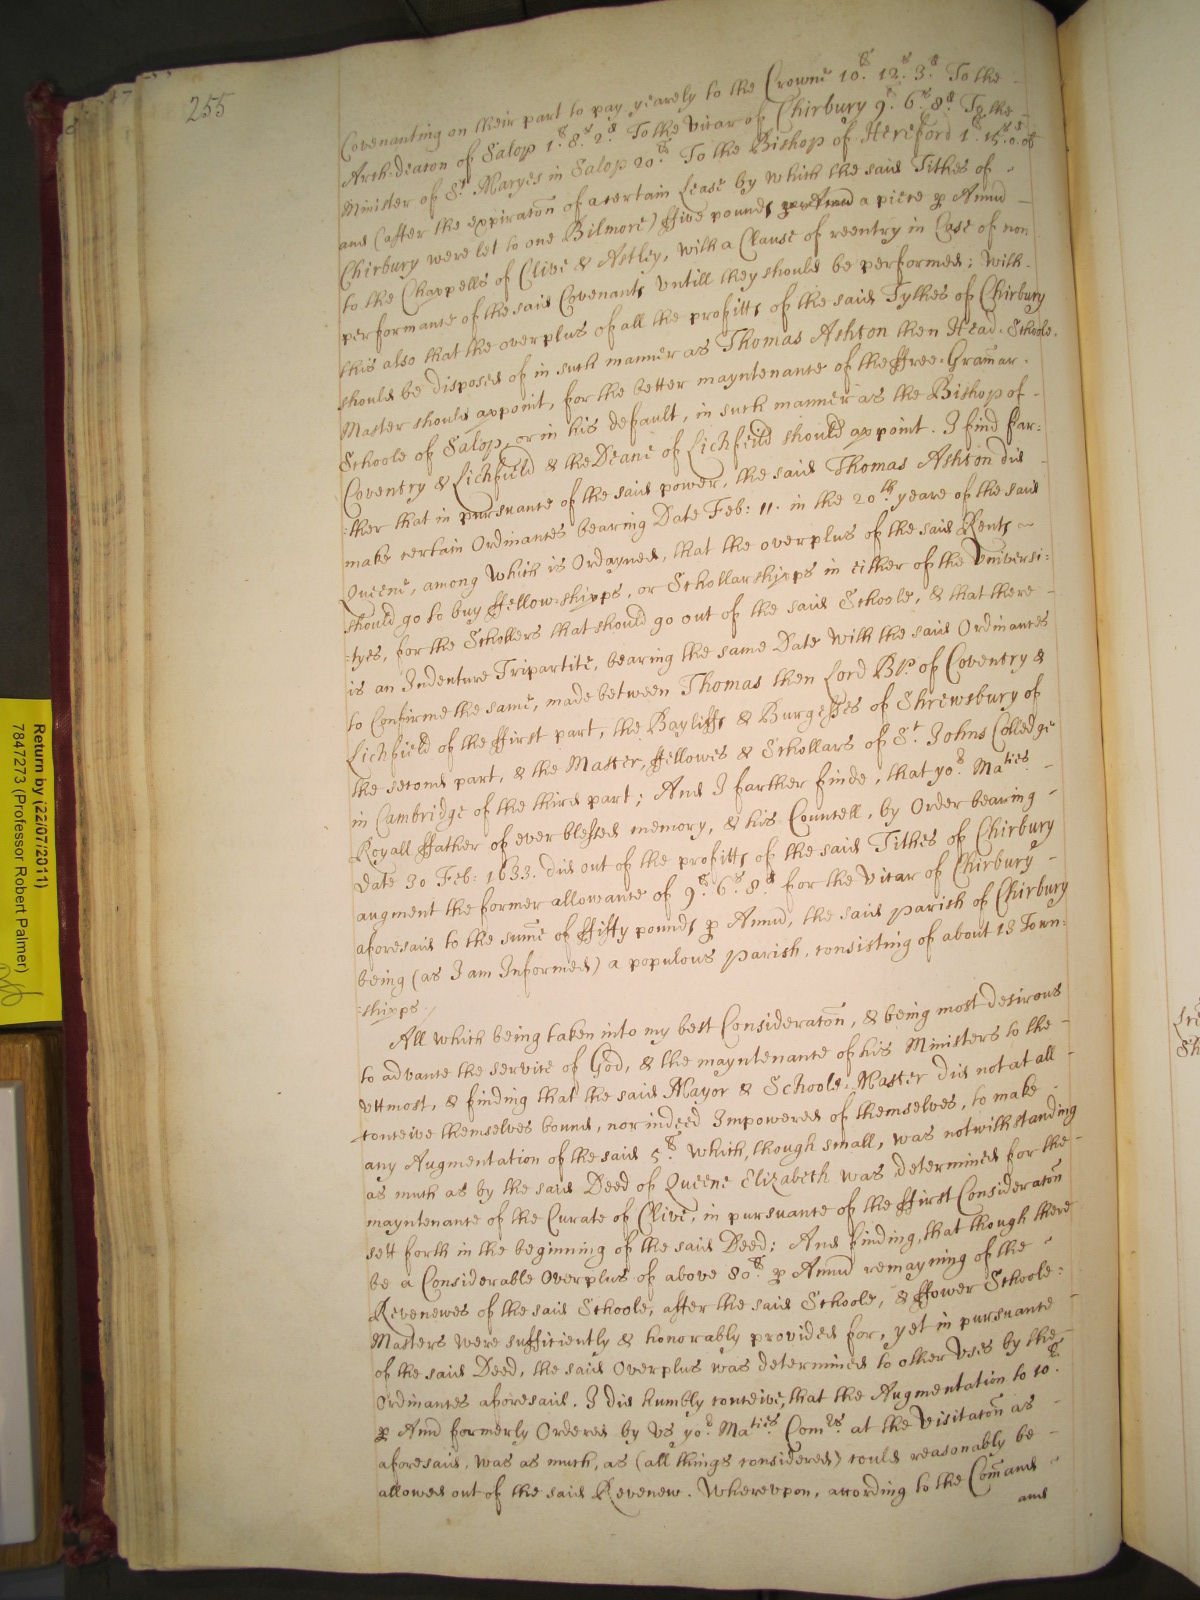 255
Covenanting on their part to pay yearely to the Crowne 10.£ 12.s 3.d To the
Arch-deacon of Salop 1.£ 8.s 2.d To the Vicar of Chirbury 9.£ 6.s 8.d To the
Minister of St. Maryes in Salop 20.£ To the Bishop of Hereford 1.£ 15.s 0.d
and (after the expiraton of a certain Lease by which the said Tithes of
Chirbury were let to one Bilmore) ffive pounds a piece p Annu
to the Chappells of Clive & Astley, with a Clause of reentry in Case of non
performance of the said Covenants untill they should be performed; with
this also that the overplus of all the profitts of the said Tythes of Chirbury
should be disposed of in such manner as Thomas Ashton then Head-Schoole-
Master should appoint, for the better mayntenance of the ffree-Gramar-
Schoole of Salop, or in his default, in such manner as the Bishop of
Coventry & Lichfeild & the Deane of Lichfeild should appoint. I find far:
:ther that in pursuance of the said power, the said Thomas Ashton did
make certain Ordinances bearing Date Feb: 11. in the 20.th yeare of the said
Queene, among which is Ordayned, that the overplus of the said Rents
should go to buy ffellow-shipps, or Schollarshipps in either of the Universi:
:tyes, for the Schollers that should go out of the said Schoole, & that there
is an Indenture Tripartite, bearing the same Date with the said Ordinances
to Confirme the same, made between Thomas then Lord Bp. of Coventry &
Lichfield of the ffirst part, the Bayliffs & Burgesses of Shrewsbury of
the second part, & the Master, ffellowes & Schollars of St. Johns Colledge
in Cambridge of the third part; And I farther finde, that yor. Maties.
Royall ffather of ever blessed memory, & his Councell, by Order bearing
Date 30 Feb: 1633. did out of the profitts of the said Tithes of Chirbury
augment the former allowance of 9.£ 6.s 8.d for the Vicar of Chirbury
aforesaid to the sume of ffifty pounds p Annu, the said parish of Chirbury
being (as I am Informed) a populous parish, consisting of about 13 Town:
:shipps.
All which being taken into my best Consideraton, & being most desirous
to advance the service of God, & the mayntenance of his Ministers to the
uttmost, & finding that the said Mayor & Schoole-Master did not at all
conceive themselves bound, nor indeed Impowered of themselves, to make
any Augmentation of the said 5.£ which, though small, was notwithstanding
as much as by the said Deed of Queene Elizabeth was determined for the
mayntenance of the Curate of Clive, in pursuance of the ffirst Consideraton
sett forth in the beginning of the said Deed; And finding, that though there
be a Considerable Overplus of above 80.£ p Annu remayning of the
Revenewes of the said Schoole, after the said Schoole, & ffower Schoole:
Masters were sufficiently & honorably provided for, yet in pursuance
of the said Deed, the said Overplus was determined to other uses by the
Ordinances aforesaid. I did humbly conceive, that the Augmentation to 10.£
p Annu formerly Ordered by us yor. Maties. Comrs. at the Visitaton as
aforesaid, was as much, as (all things considered) could reasonably be
allowed out of the said Revenew. Whereupon, according to the Comand
and
Return by (22/07/2011)
7847273 (Professor Robert Palmer)